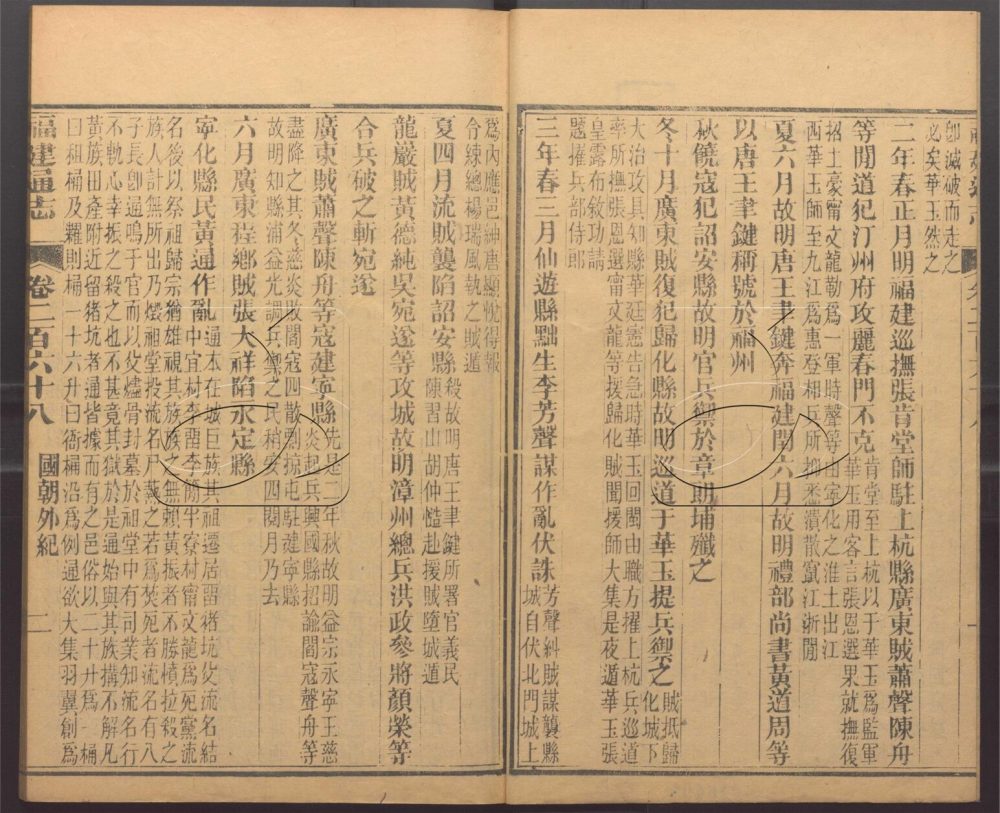 卽滅破而走之
必矣華玉然之
二年春正月明福建巡撫張肯堂師駐上杭縣廣東賊蕭聲陳丹
等閒道犯汀州府攻麗春門不克肯堂至上杭以于華玉爲監軍
華玉用客言張恩選果就撫復
招土豪甯文龍勒爲一軍時聲等由寧化之淮土出江
西華玉師至九江爲惠登相兵所拶悉潰散竄江浙閒
夏六月故明唐王聿鍵奔福建閏六月故明禮部尚書黃道周等
以唐王聿鍵稱號於福州
秋饒寇犯詔安縣故明官兵禦於章朗埔殲之
冬十月廣東賊復犯歸化縣故明巡道于華玉提兵禦之賊抵歸
化城下
大治攻具知縣華廷憲告急時華玉回閩由職方擢上杭兵巡道
率所撫張恩選甯文龍等援歸化賊聞援師大集是夜遁華玉張
皇露布敘功請
題擢兵部侍郎
三年春三月仙遊縣黜生李芳聲謀作亂伏誅芳聲糾賊謀襲縣
城自伏北門城上
爲內應邑紳唐顯悅得報
合練總楊瑞風執之賊遁
夏四月流賊襲陷詔安縣殺故明唐王聿鍵所署官義民
陳習山胡仲慥赴援賊墮城遁
龍嚴賊黃德純吳宛遂等攻城故明漳州總兵洪政參將顏榮等
合兵破之斬宛遂
廣東賊蕭聲陳丹等寇建寧縣先是二年秋故明益宗永寧王慈
炎起兵興國縣招諭閻寇聲丹等
盡降之其冬慈炎敗閻寇四散剽掠屯駐建寧縣
故明知縣浦益光調兵禦之民稍安四閱月乃去
六月廣東程鄉賊張大祥陷永定縣
寧化縣民黃通作亂通本在城巨族其祖遷居畱豬坑父流名結
中宜村李畱李簡半寮村甯文龍爲死黨流
名後以祭祖歸宗猶雄視其族族之無賴黃振者不勝憤拉殺之
族人計無所出乃爇祖堂投流名尸燕之若爲焚死者流名有八
子長卽通鳴于官而以父燼骨封墓於祖堂中有司業知流名行
不軌心幸振之殺之也不甚竟其獄於是通始與其族搆不解凡
黃族田產附近留猪坑者通皆據而有之邑俗以二十升爲一桶
曰租桶及糶則桶一十六升曰衙桶沿爲例通欲大集羽翼創爲
福建通志
卷二百六十八
國朝外紀
二